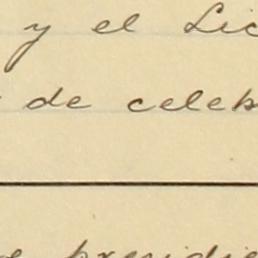 y el Lic
de celeb
presidie